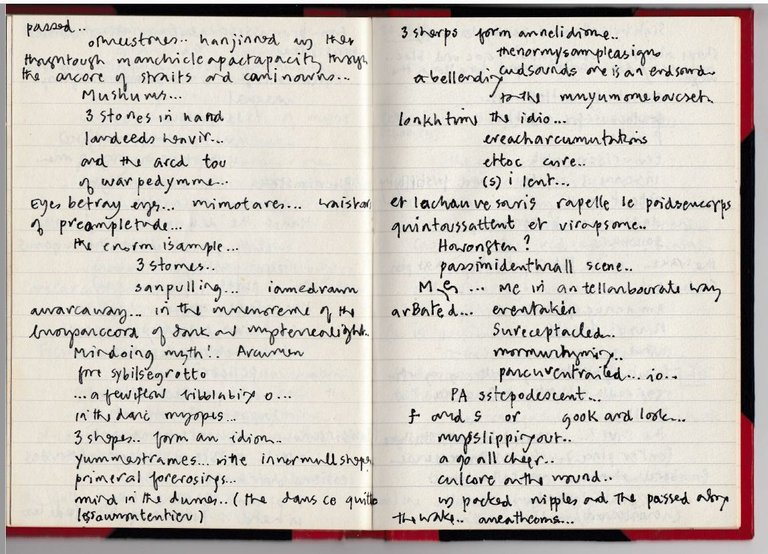 passed..
ofmeestones.. hanjinned in thes
thoughtough manchicleapactapacity through
the arcore of straits and caminowns...
Mushums...
3 stones in hand
landeeds heavir...
and the arcd tou
of war pedymme...
Eyes betray eyes... mimotares... waistars
of preampletude...
the enorm isample...
3 stomes..
sanpulling... iamedrawn
awarcaway... in the mnemoreme of the
buoyanccord of dark and mysterrealights..
Mindoing myth!.. Arcumen
fore sybilsegrotto
...a fewflow tibblabix o...
in the daric myopes...
3 shopes.. form an idiom..
yummestrames... in the innermullshopes
primeral forerosings...
mind in the dumes.. (the dans ce quitte
lessaumontentieu)
3 sherps form annelidiome..
thenormysampleasign
abellending endsounds one is an endsound
to the mnyumomebarcseth
lonkhtime the idio...
ereacharcumutations
ettoc cure..
(s) i lent...
et lachauvesaris rapelle le poidsencorps
quintoussattent et virapsome..
Howongten?
passimidenthrall scene..
M es ... me in an tellanbourate way
arBated... eventaken
Sureceptacled..
mormurhymix..
pancuventrailed... io..
PA sstepodescent...
f and s or gook and look...
mypslippiyout..
a go all cheer..
culcore on the wound..
in packed nipples and the passed along
the wake.. aneathcoms...